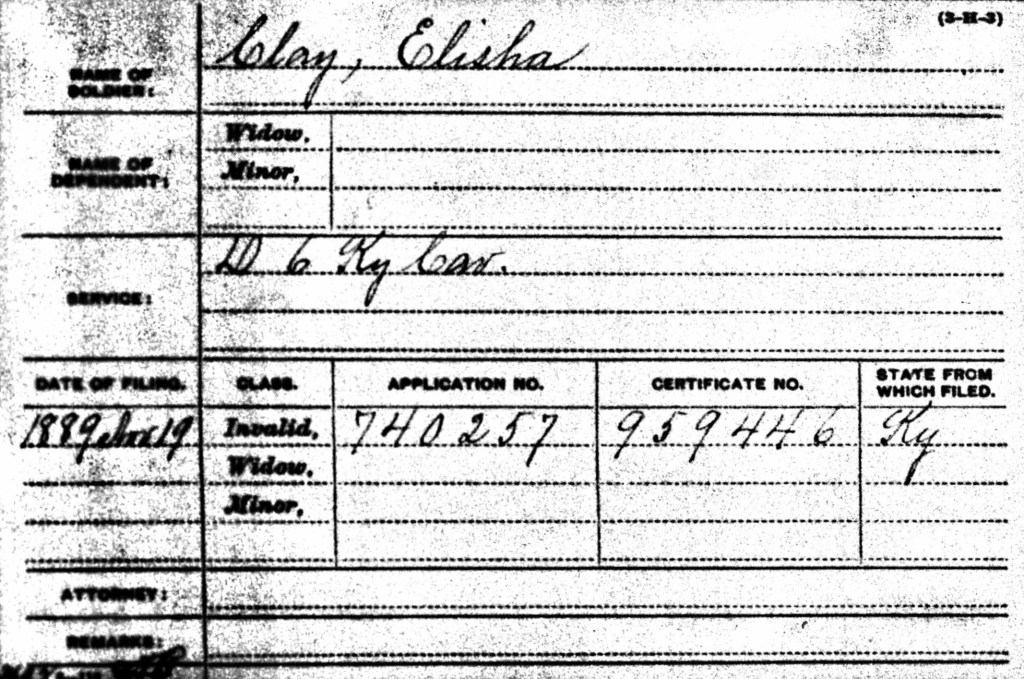 (3-H-3)
NAME OF SOLDIER: Clay, Elisha
NAME OF DEPENDENT: Widow.
Minor,
SERVICE: D 6 Ky Cav.
DATE OF FILING. CLASS. APPLICATION NO. CERTIFICATE NO. STATE FROM WHICH FILED.
1889 19 Invalid, 740257 959446 Ky
Widow,
Minor,
ATTORNEY:
REMARKS: